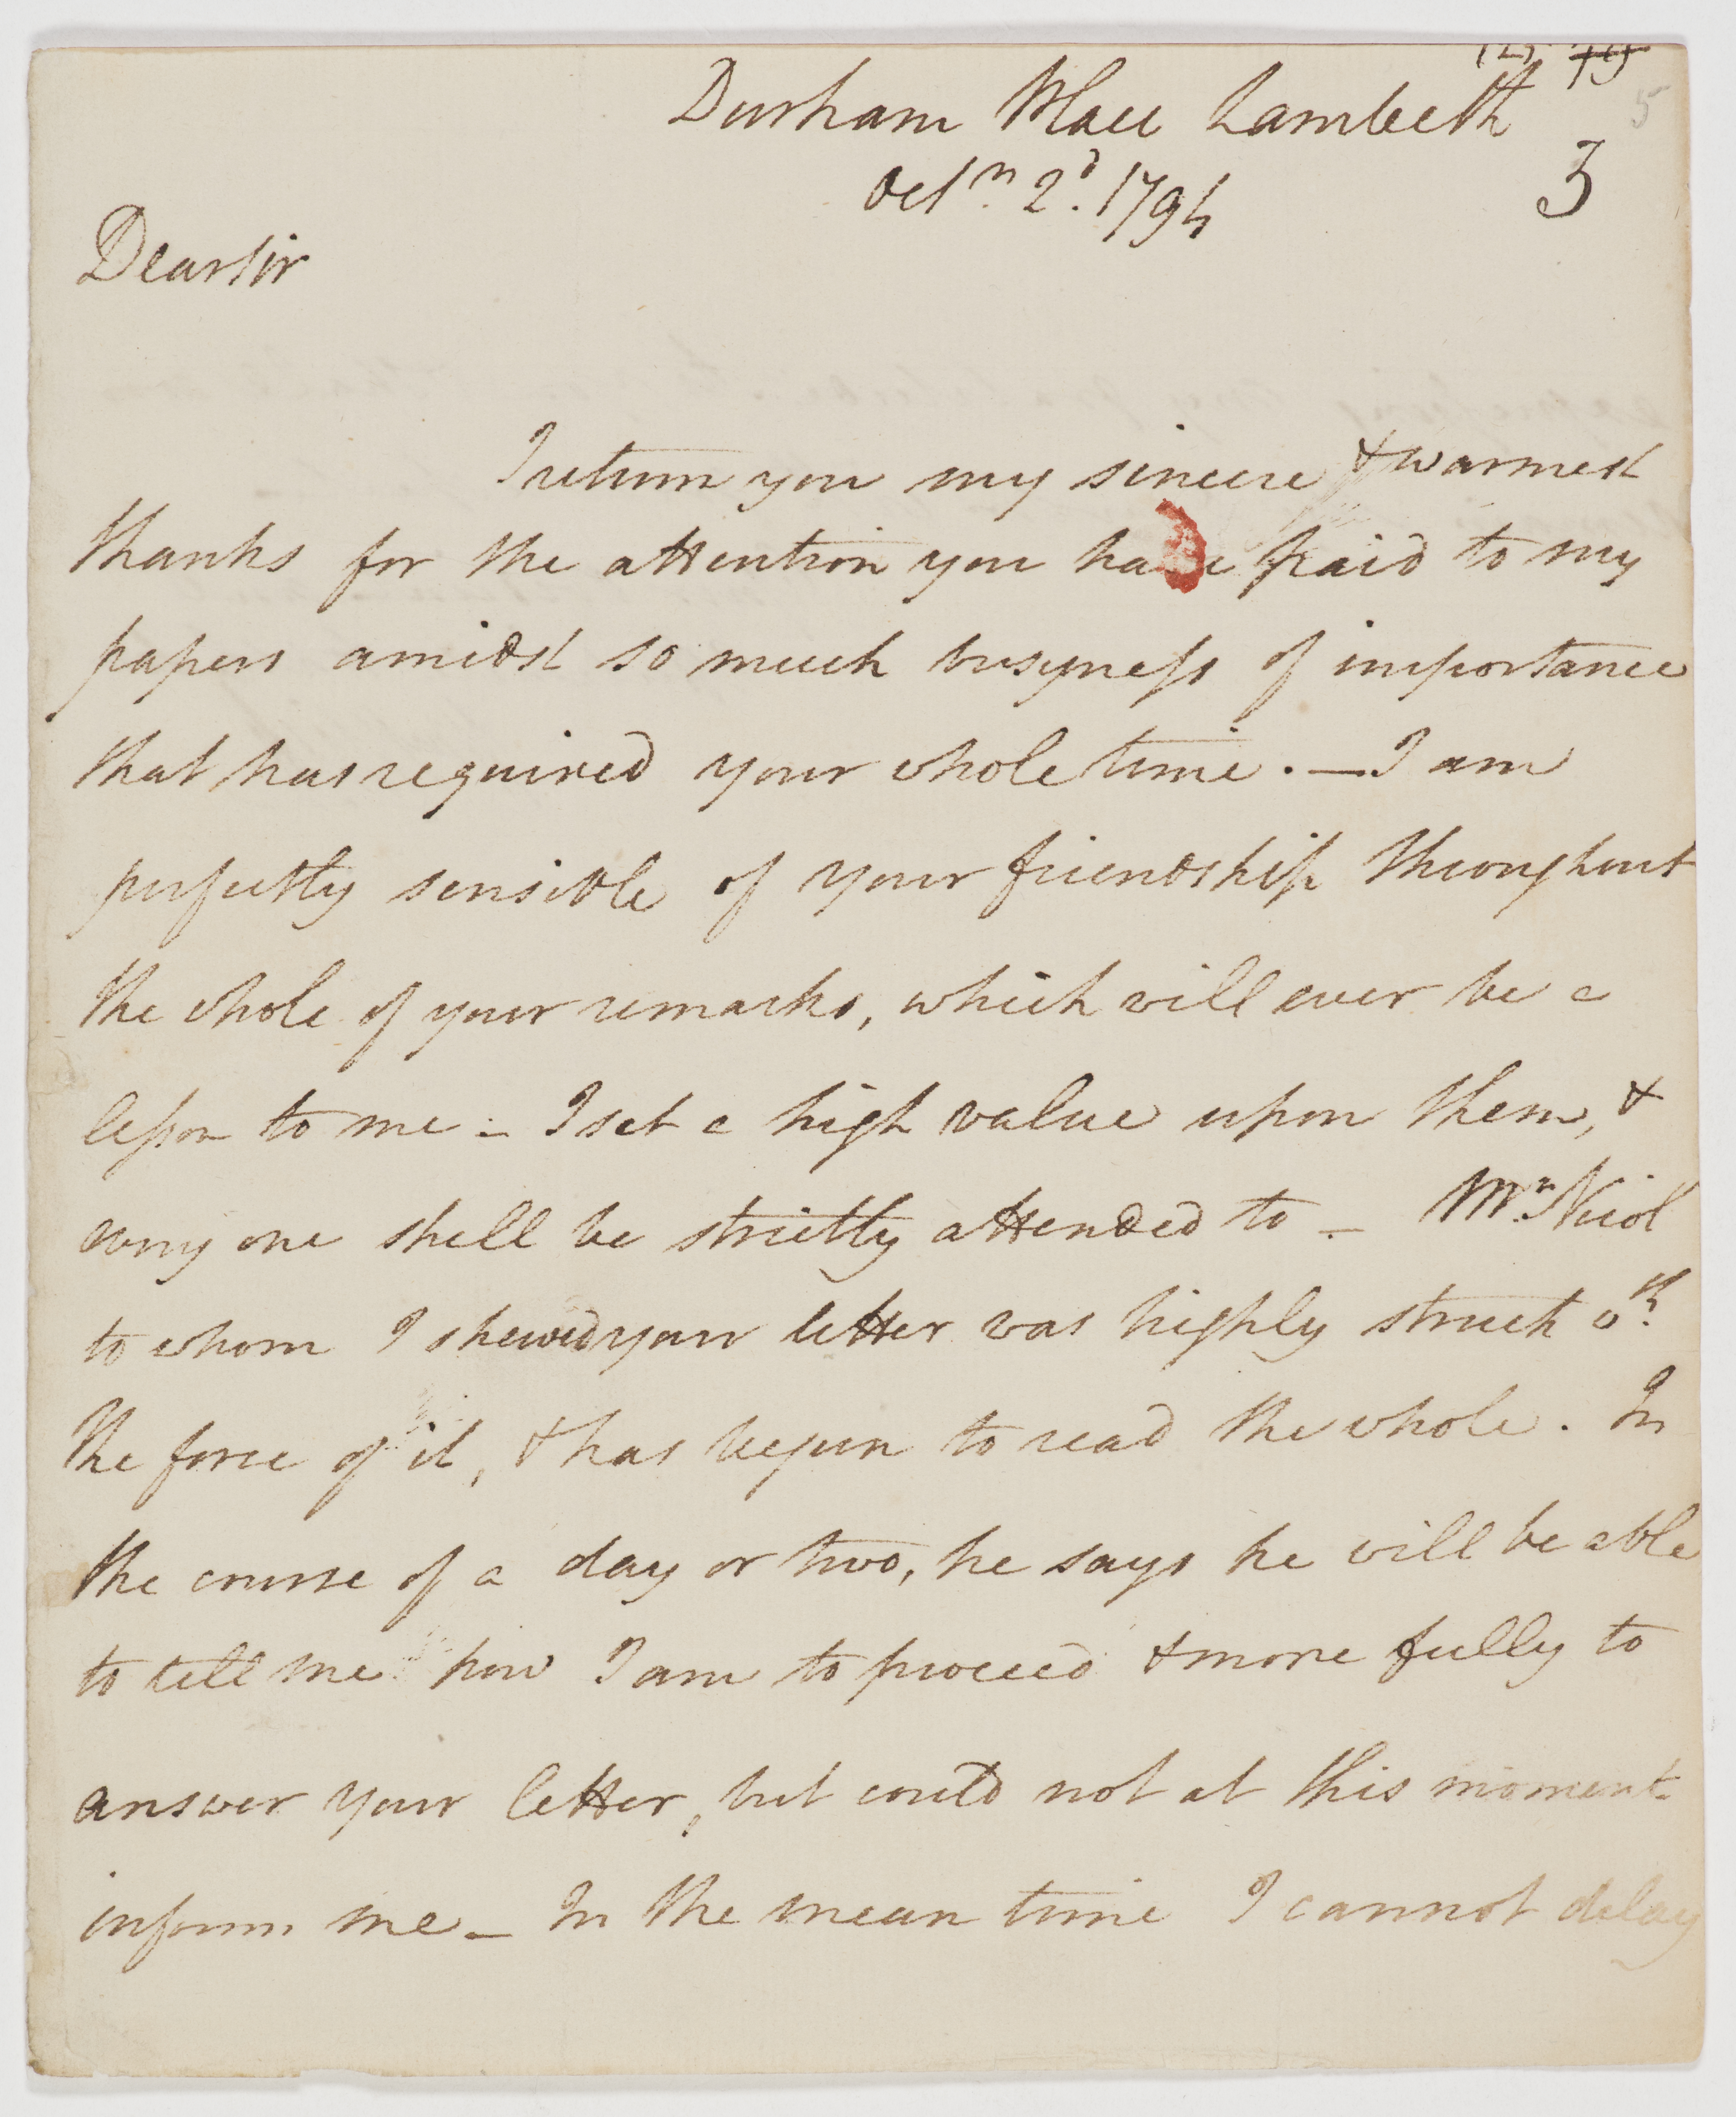 Durham Place Lambeth
3
5
Octr. 2d. 1794
Dear Sir
I return you my sincere & warmest
thanks for the attention you have paid to my
papers amidst so much busyness of importance
that has required your whole time. — I am
perfectly sensible of your friendship throughout
the whole of your remarks, which will ever be a
lesson to me - I set a high value upon them, &
every one shall be strictly attended to - Mr. Nicol
to whom I shewed your letter was highly struck wth.
the force of it, & has begun to read the whole. In
the course of a day or two, he says he will be able
to tell me how I am to proceed & more fully to
answer your letter, but could not at this moment
inform me - In the mean time I cannot delay